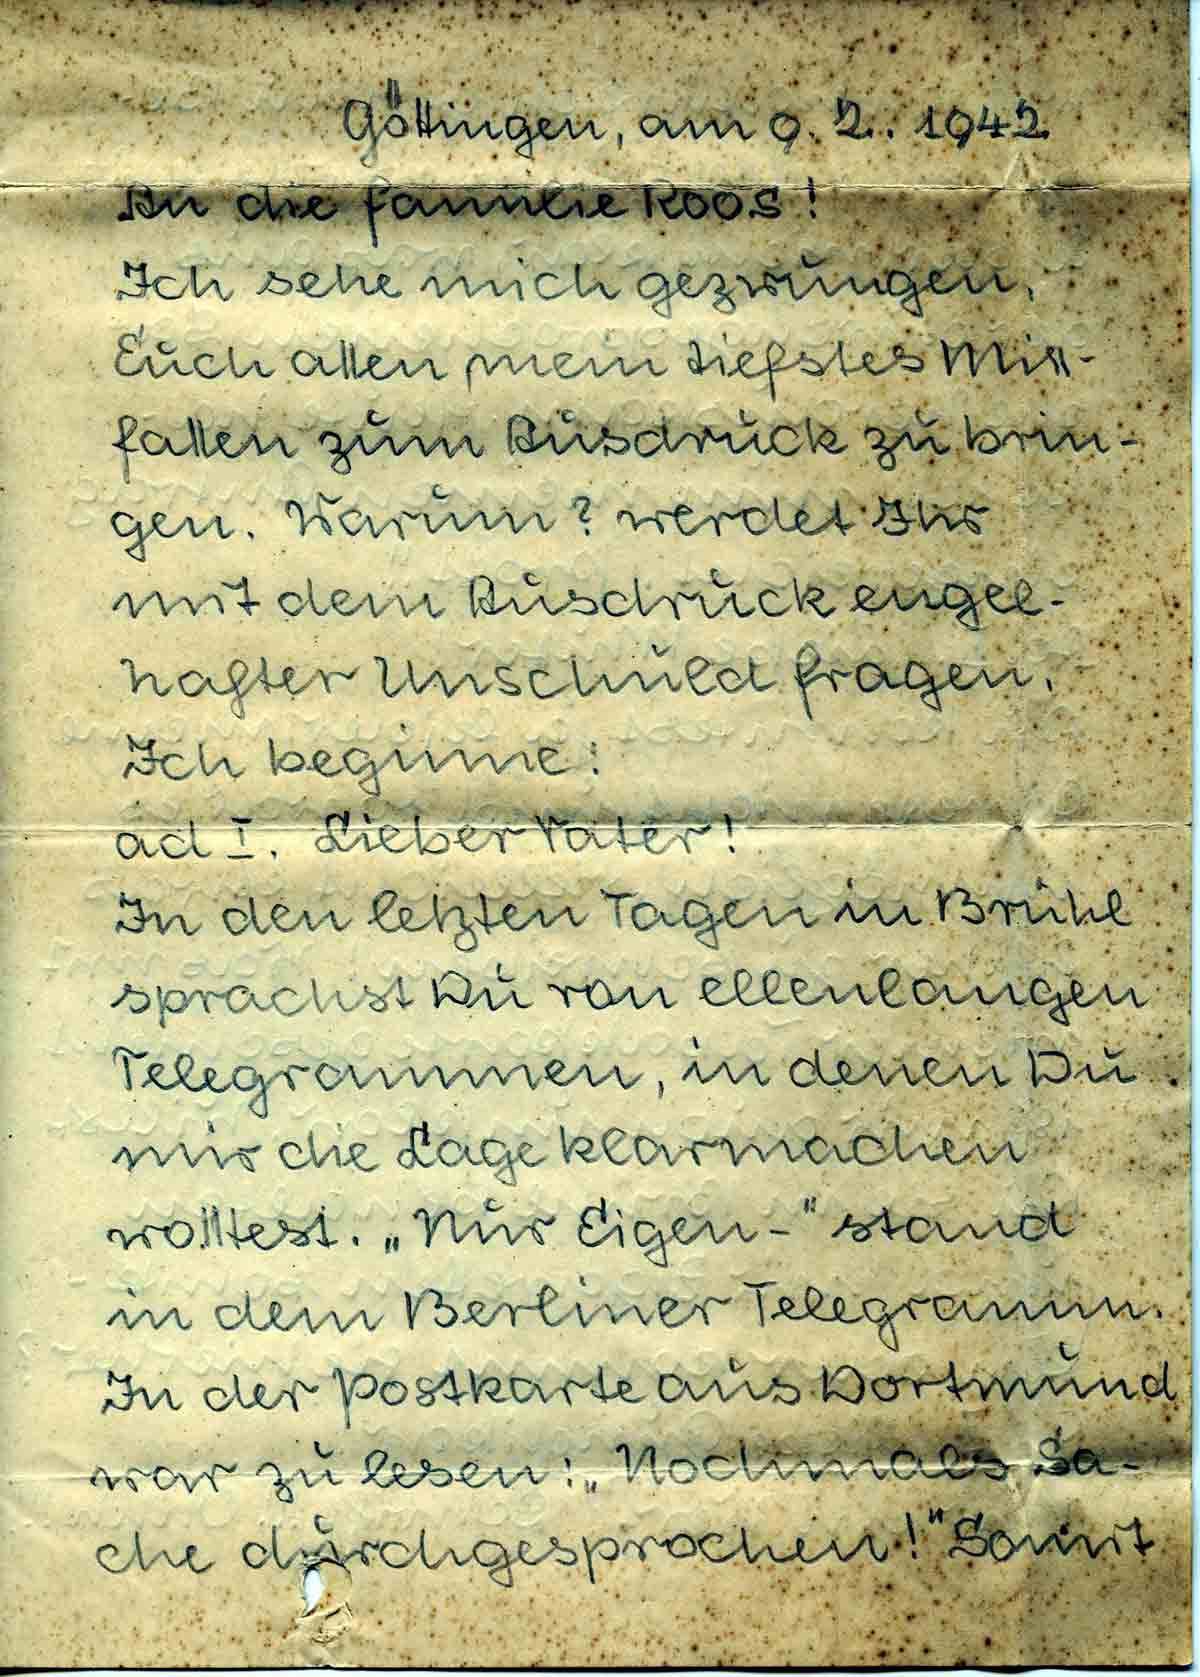 Göttingen, am 9. 2. 1942
An die Familie Roos!
Ich sehe mich gezwungen,
Euch allen mein tiefstes Miß-
fallen zum Ausdruck zu brin-
gen. Warum? werdet Ihr
mit dem Ausdruck engel-
hafter Unschuld fragen.
Ich beginne:
ad I. Lieber Vater!
In den letzten Tagen in Brühl
sprachst Du von ellenlangen
Telegrammen, in denen Du
mir die Lage klarmachen
wolltest. „Nur Eigen-" stand
in dem Berliner Telegramm.
In der Postkarte aus Dortmund
war zu lesen: „Nochmals Sa-
che durchgesprochen!" Somit